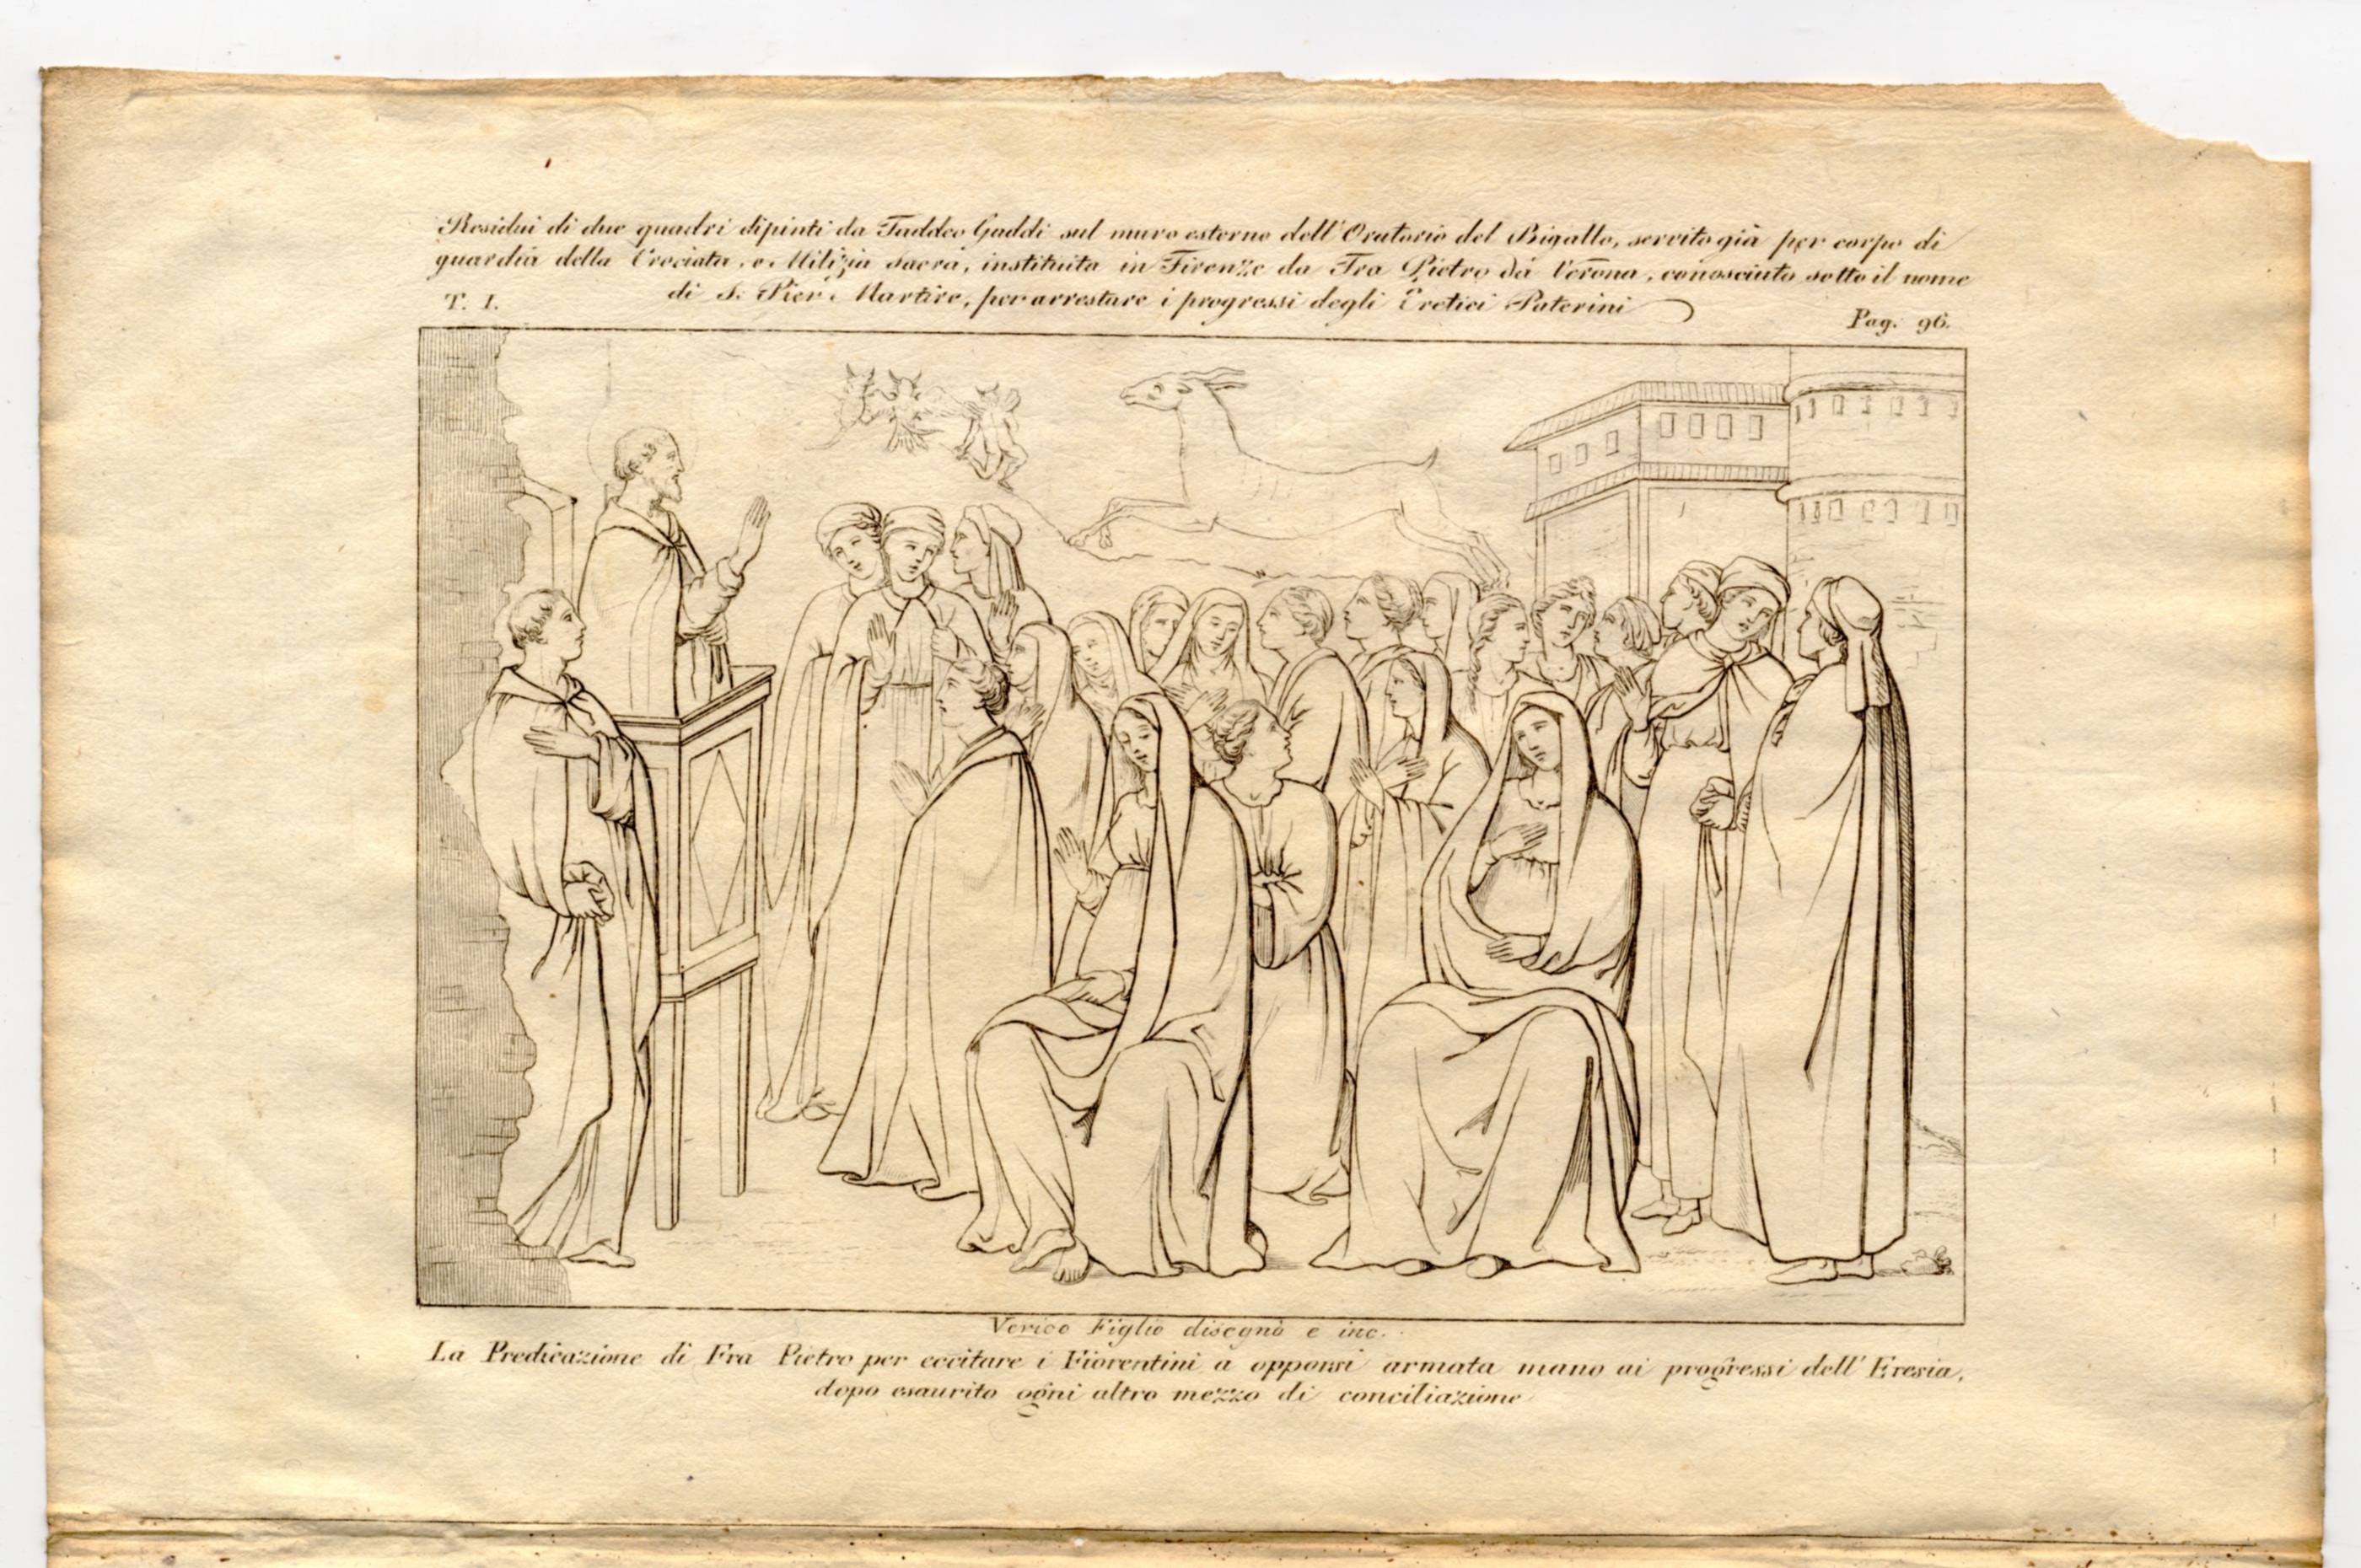 Residui di due quadri dipinti da Taddeo Gaddi sul muro esterno dell'Oratorio del Bigallo, servito già per corpo di
guardia della Crociata, o Milizia sacra, instituita in Firenze da Fra Pietro da Verona, conosciuto sotto il nome
di S. Pier Martire, per arrestare i progressi degli Eretici Paterini
T. I.
Pag. 96.
Verico Figlio disegnò e inc.
La Predicazione di Fra Pietro per eccitare i Fiorentini a opporsi armata mano ai progressi dell'Eresia,
dopo esaurito ogni altro mezzo di conciliazione